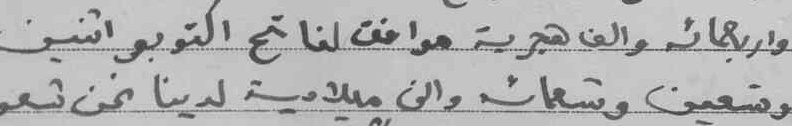 واربعمائه والف هجرية موافق لفاتح اكتوبر اثنين
وتسعين وتسعمائه والف ميلادية لدينا نحن